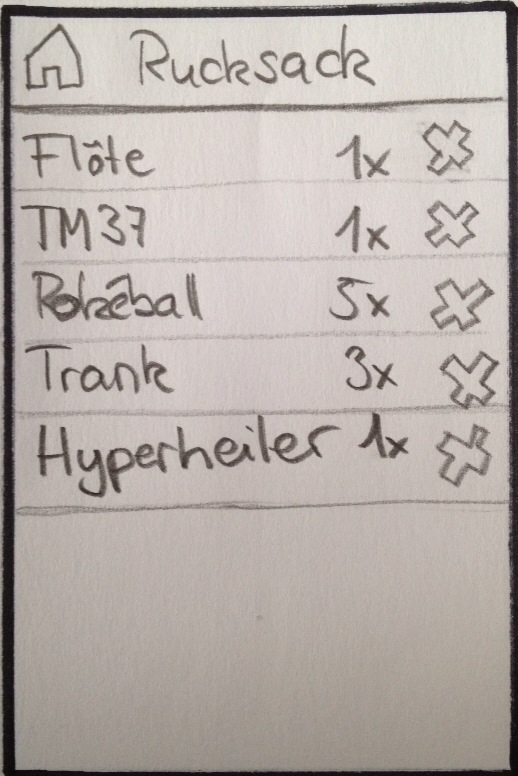 Rucksack
Flöte 1x
TM37 1x
Pokéball 5x
Trank 3x
Hyperheiler 1x